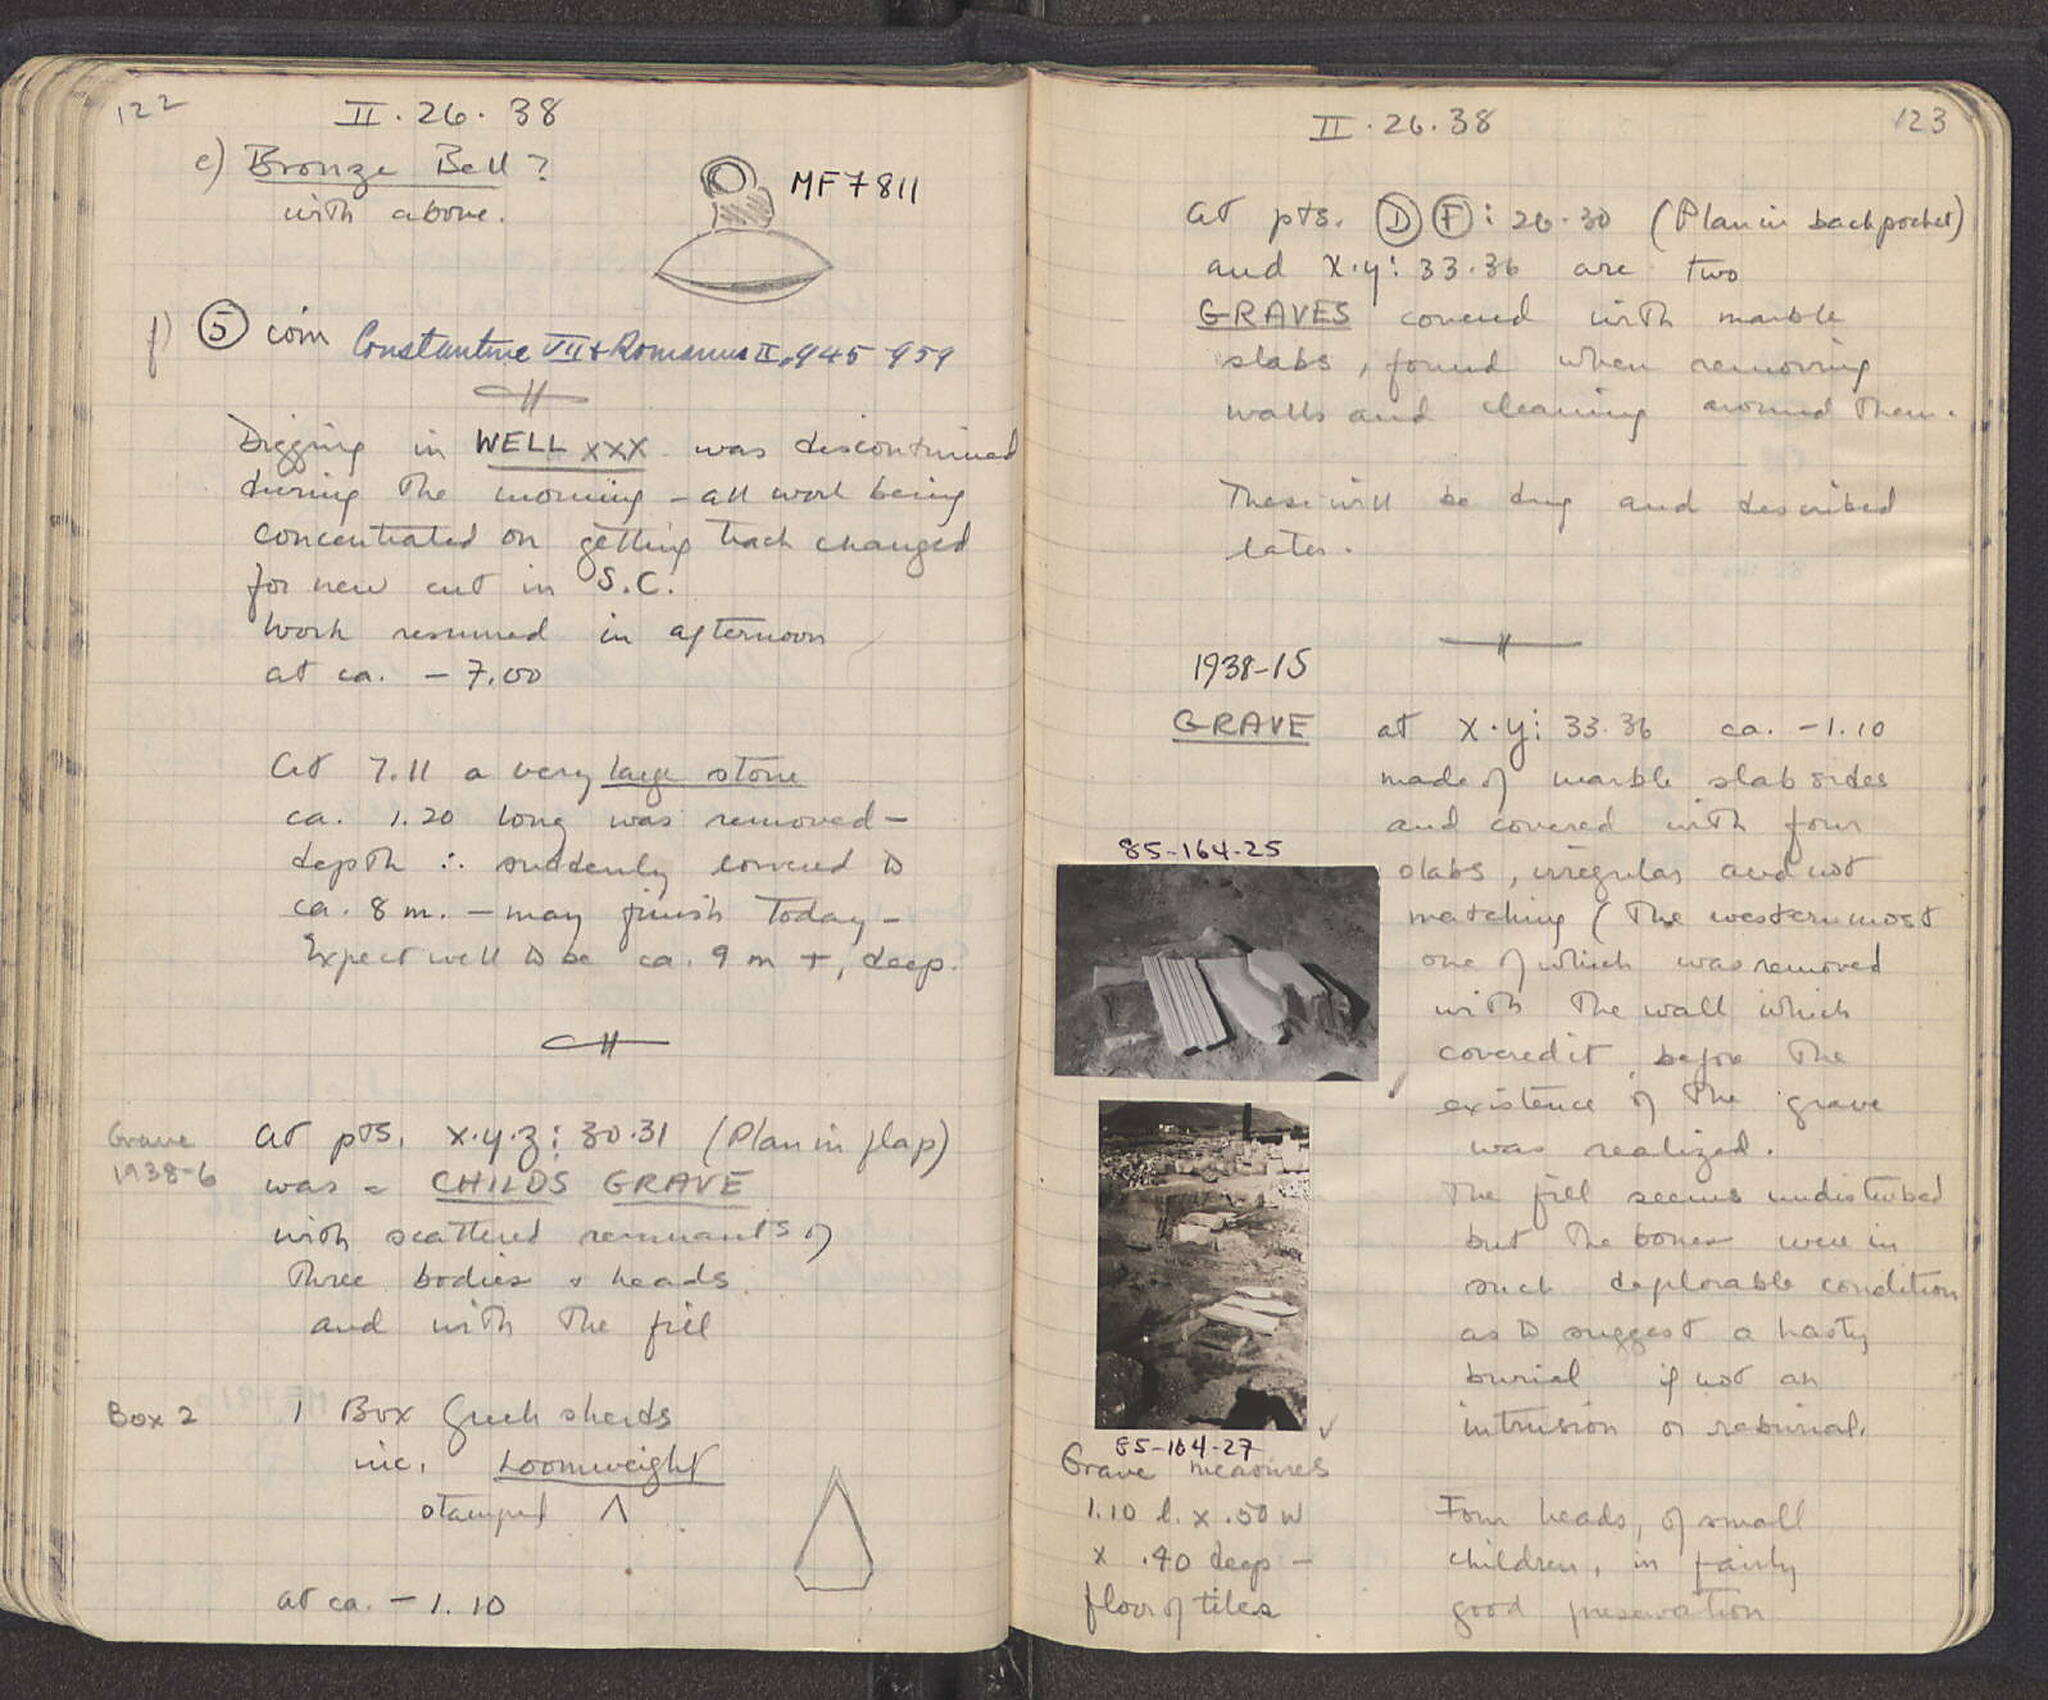 122
II . 26 . 38
e) Bronze Bell ?
with above.
MF 7811
f) 5 coin Constantine VII + Romanus II, 945-959
Digging in WELL XXX was discontinued
during the morning - all work being
concentrated on getting track changed
for new cut in S.C.
Work resumed in afternoon
at ca. - 7.00
At 7.11 a very large stone
ca. 1.20 long was removed -
depth ∴ suddenly lowered to
ca. 8 m. - may finish today -
Expect well to be ca. 9 m +, deep.
Grave
1938-6
At pts. x.y.z : 30.31 (Plan in flap)
was a CHILDS GRAVE
with scattered remnants of
three bodies + heads
and with the fill
Box 2
1 Box Greek sherds
inc. Loomweight
stamped Λ
at ca. - 1.10
II . 26 . 38
123
At pts. D F : 26.30 (Plan in backpocket)
and X.y: 33.36 are two
GRAVES covered with marble
slabs, found when removing
walls and cleaning around them.
These will be dug and described
later.
1938-15
GRAVE at x.y: 33.36 ca. -1.10
made of marble slab sides
and covered with four
slabs, irregular and not
matching (the westernmost
one of which was removed
with the wall which
covered it before the
existence of the grave
was realized.
The fill seems undisturbed
but the bones were in
such deplorable condition
as to suggest a hasty
burial if not an
intrusion or reburial.
Four heads, of small
children, in fairly
good preservation
85-164-25
85-164-27
Grave measures
1.10 l. x .50 w
x .40 deep -
floor of tiles